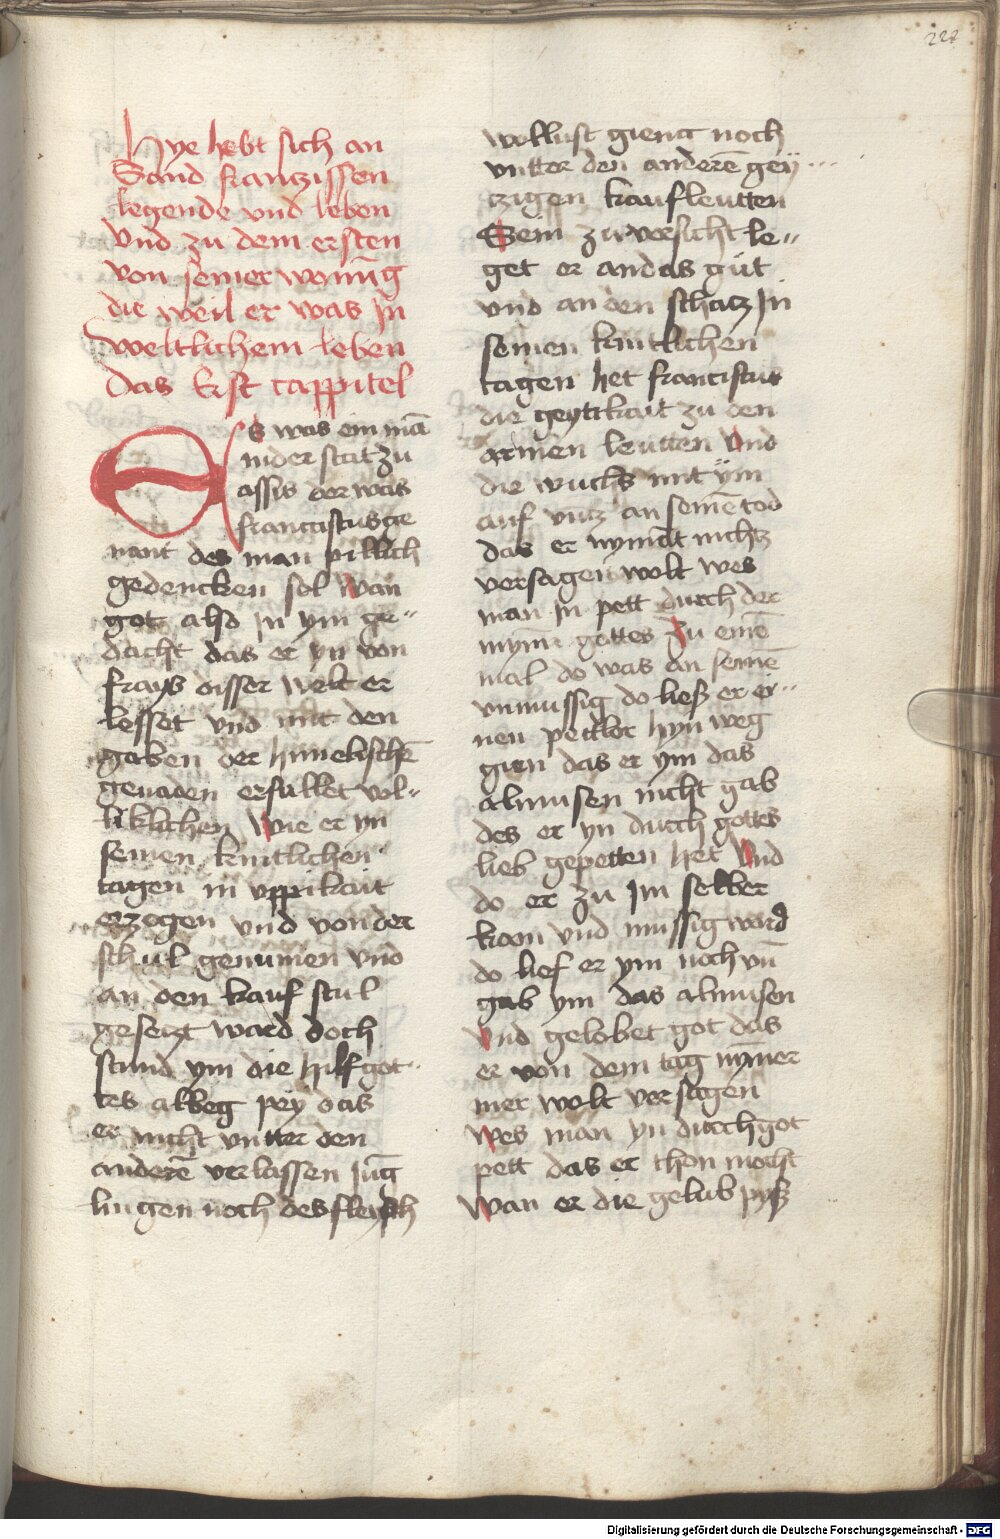 222
Hye hebt sich an
Sand franczissen
legende vnd leben
Vnd zu dem ersten
von seiner wonūg
die weil er was In
weltlichem leben
das Erst cappitel
Es was ein mā
in der stat zu
assis der was
franciscus ge
nant des man pillich
gedencken sol Wan
got also in ym ge-
dacht das er yn von
frays disser welt er
lesset vnd mit den
gaben der himelischē
genaden erfullet vol-
liklichen Wie er yn
seinen kintlichen
tagen in vppikait
erzogen vnd von der
schul genumen vnd
an den kauf stul
gesetzt ward doch
stund ym die hilf got-
tes albeg pey das
er nicht vntter den
anderē verlassen Jūg
lingen noch des fleysch
wollust gieng noch
vntter den anderē gey
czigen kaufleutten
Sein zuversicht le-
get er an das gůt
vnd an den schatz In
seinen kintlichen
tagen het franciscus
die geytikait zu den
armen leutten Vnd
die wuchs mit ÿm
auf vntz an seinē tod
das er nymāt nichtz
versagen wolt wes
man in pett durch der
mynn gottes Zu einē
mal do was an seinē
vnmussig do ließ er ei-
nen pettler hyn weg
gien das er ym das
almusen nicht gab
des er yn durch gottes
lieb gepetten het Vnd
do er zu Im selber
kom vnd mussig ward
do lief er ym noch vn̄
gab ym das almusen
Vnd gelobet got das
er von dem tag nymer
mer wolt versagen
Wes man yn durch got
pett das er thon mocht
Wan er die gelub pyß
Digitalisierung gefördert durch die Deutsche Forschungsgemeinschaft - DFG